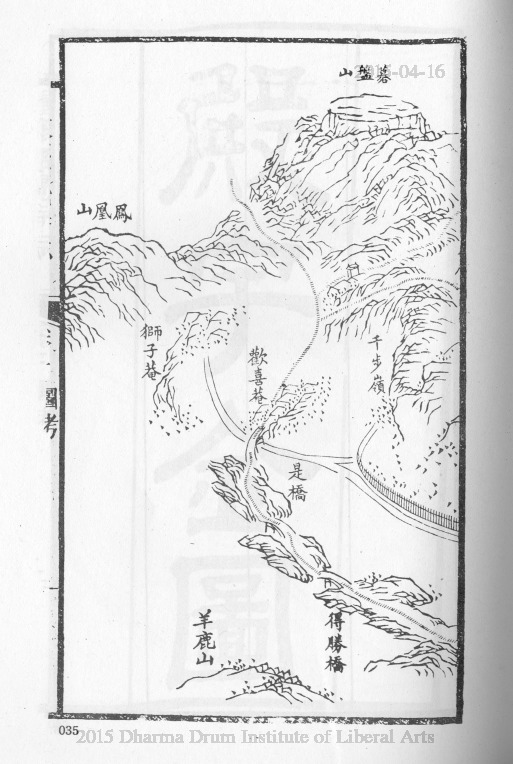 2015-04-16
碁盤山
鳳凰山
千步嶺
歡喜菴
獅子菴
是橋
得勝橋
羊鹿山
圖考
035
2015 Dharma Drum Institute of Liberal Arts